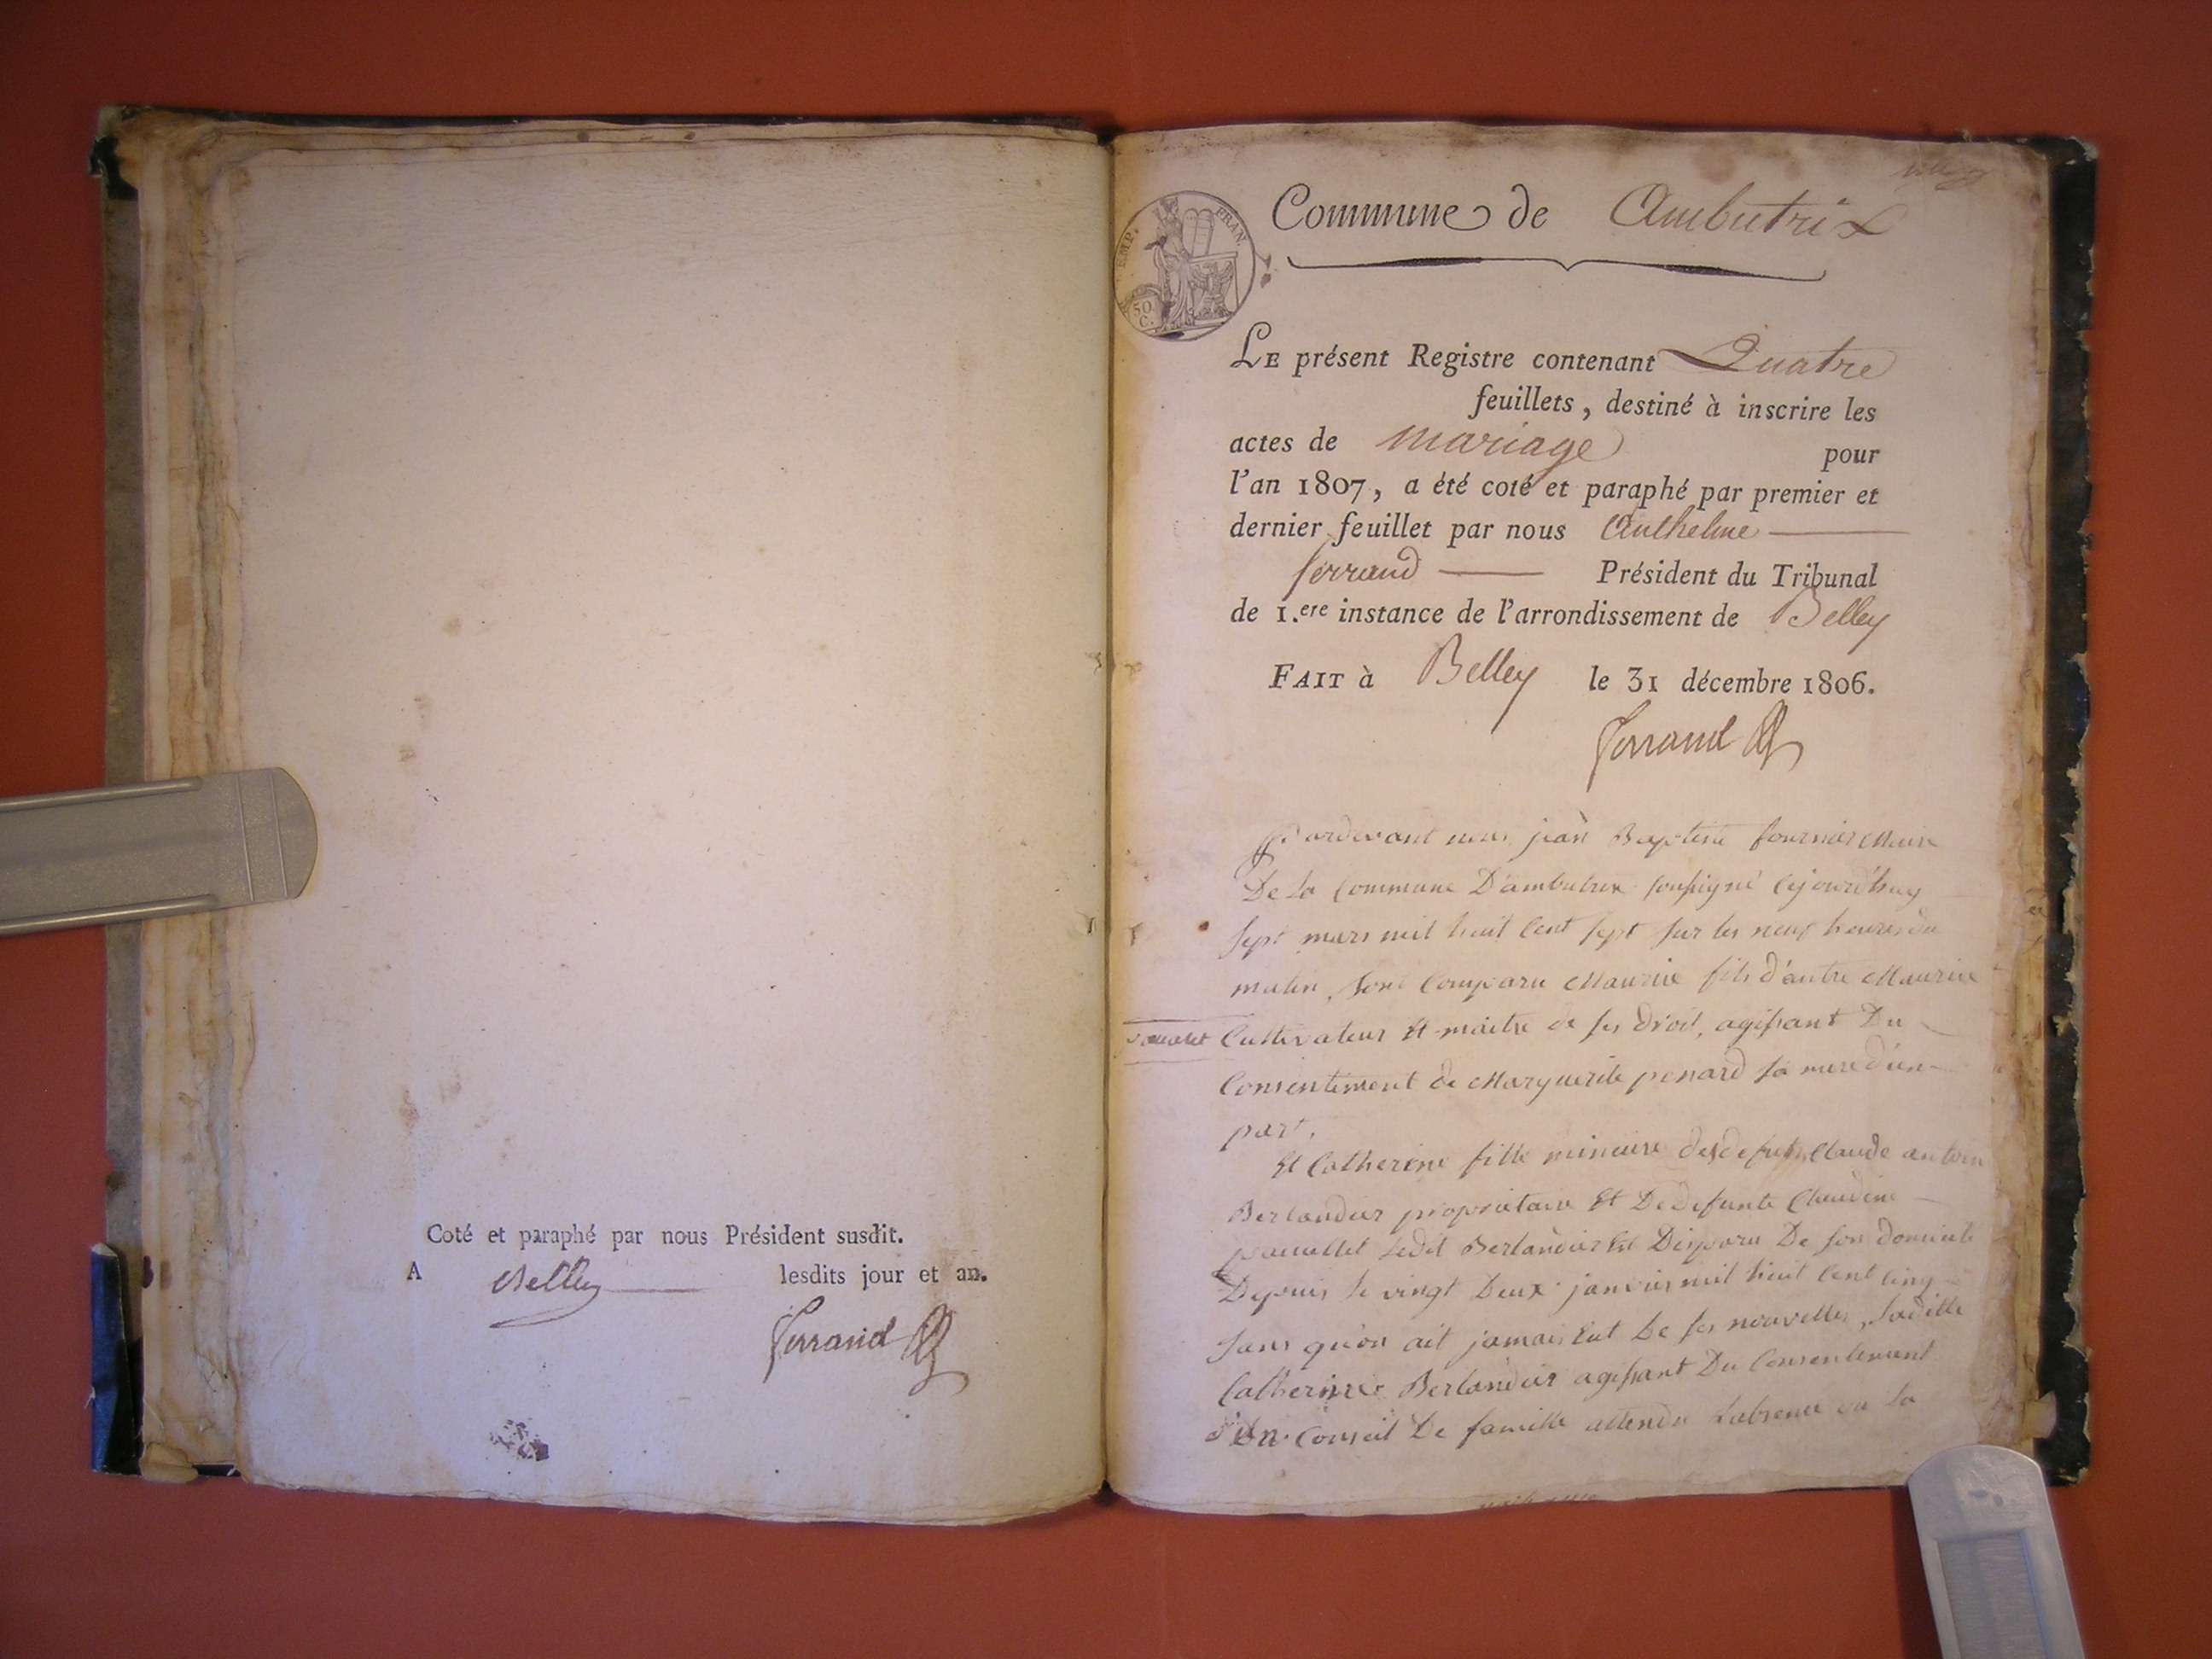 Coté et paraphé par nous Président susdit.
A Belley lesdits jour et an.
Ferrand
EMP. FRAN.
50 C.
Commune de Ambutrix
LE présent Registre contenant Quatre
feuillets, destiné à inscrire les
actes de mariage pour
l'an 1807, a été coté et paraphé par premier et
dernier feuillet par nous Anthelme
ferrand Président du Tribunal
de 1.ere instance de l'arrondissement de Belley
FAIT à Belley le 31 décembre 1806.
Ferrand
pardevant nous jean Baptiste fournier Maire
De la Commune D'ambutrix soussigné Cejourd'huy
sept mars mil huit Cent sept sur les neuf heures du
matin, sont Comparu Maurice fils d'autre Maurice
Cultivateur Et maitre de ses droit, agissant Du
Consentement de Marguerite penard sa mere d'un
part,
Et Catherine fille mineure Claude antoin
Berlandier propriétaire Et De defunte Claudine
ledit Berlandier Est Disparu De son domicile
Depuis le vingt Deux janvier mil huit Cent Cinq
sans qu'on ait jamais Eut De ses nouvelles, laditte
Catherine Berlandier agissant Du Consentement
d'un Conseil De famille attendu Labsence ou la